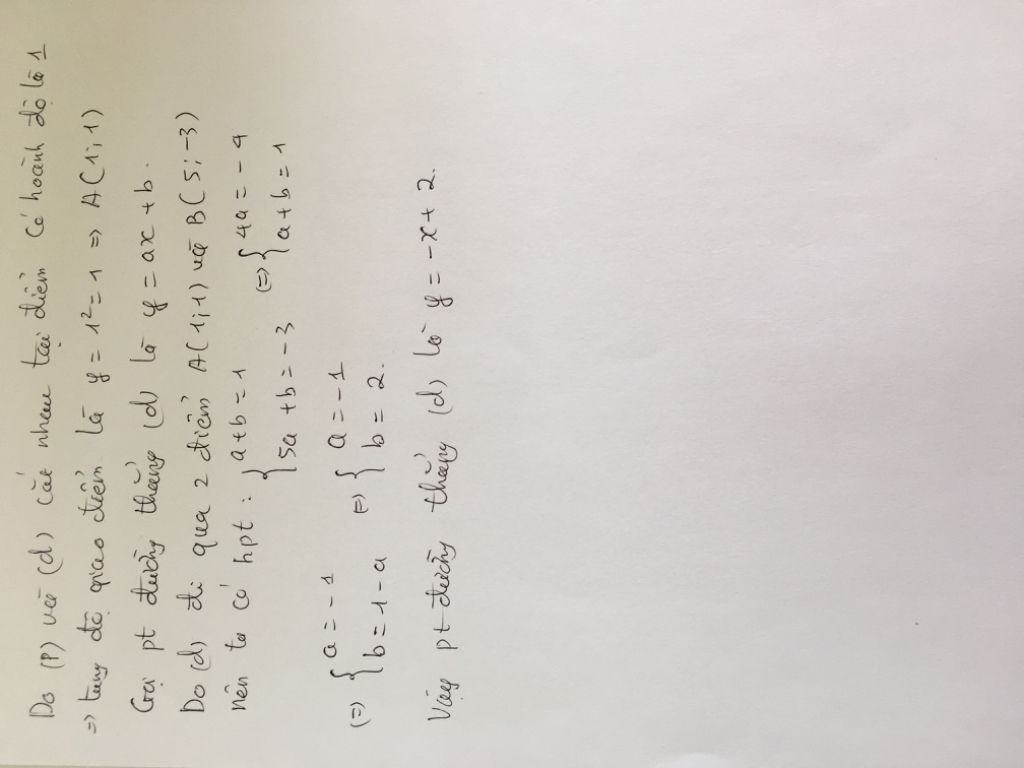 Do (P) và (d) cắt nhau tại điểm có hoành độ là 1
=> tung độ giao điểm là y = 1² = 1 => A(1;1)
Gọi pt đường thẳng (d) là y = ax + b.
Do (d) đi qua 2 điểm A(1;1) và B(5;-3)
nên ta có hpt : { a+b = 1 (=) { 4a = -4
5a + b = -3 a+b = 1
(=) { a = -1 (=) { a = -1
b = 1 - a b = 2.
Vậy pt đường thẳng (d) là y = -x + 2.